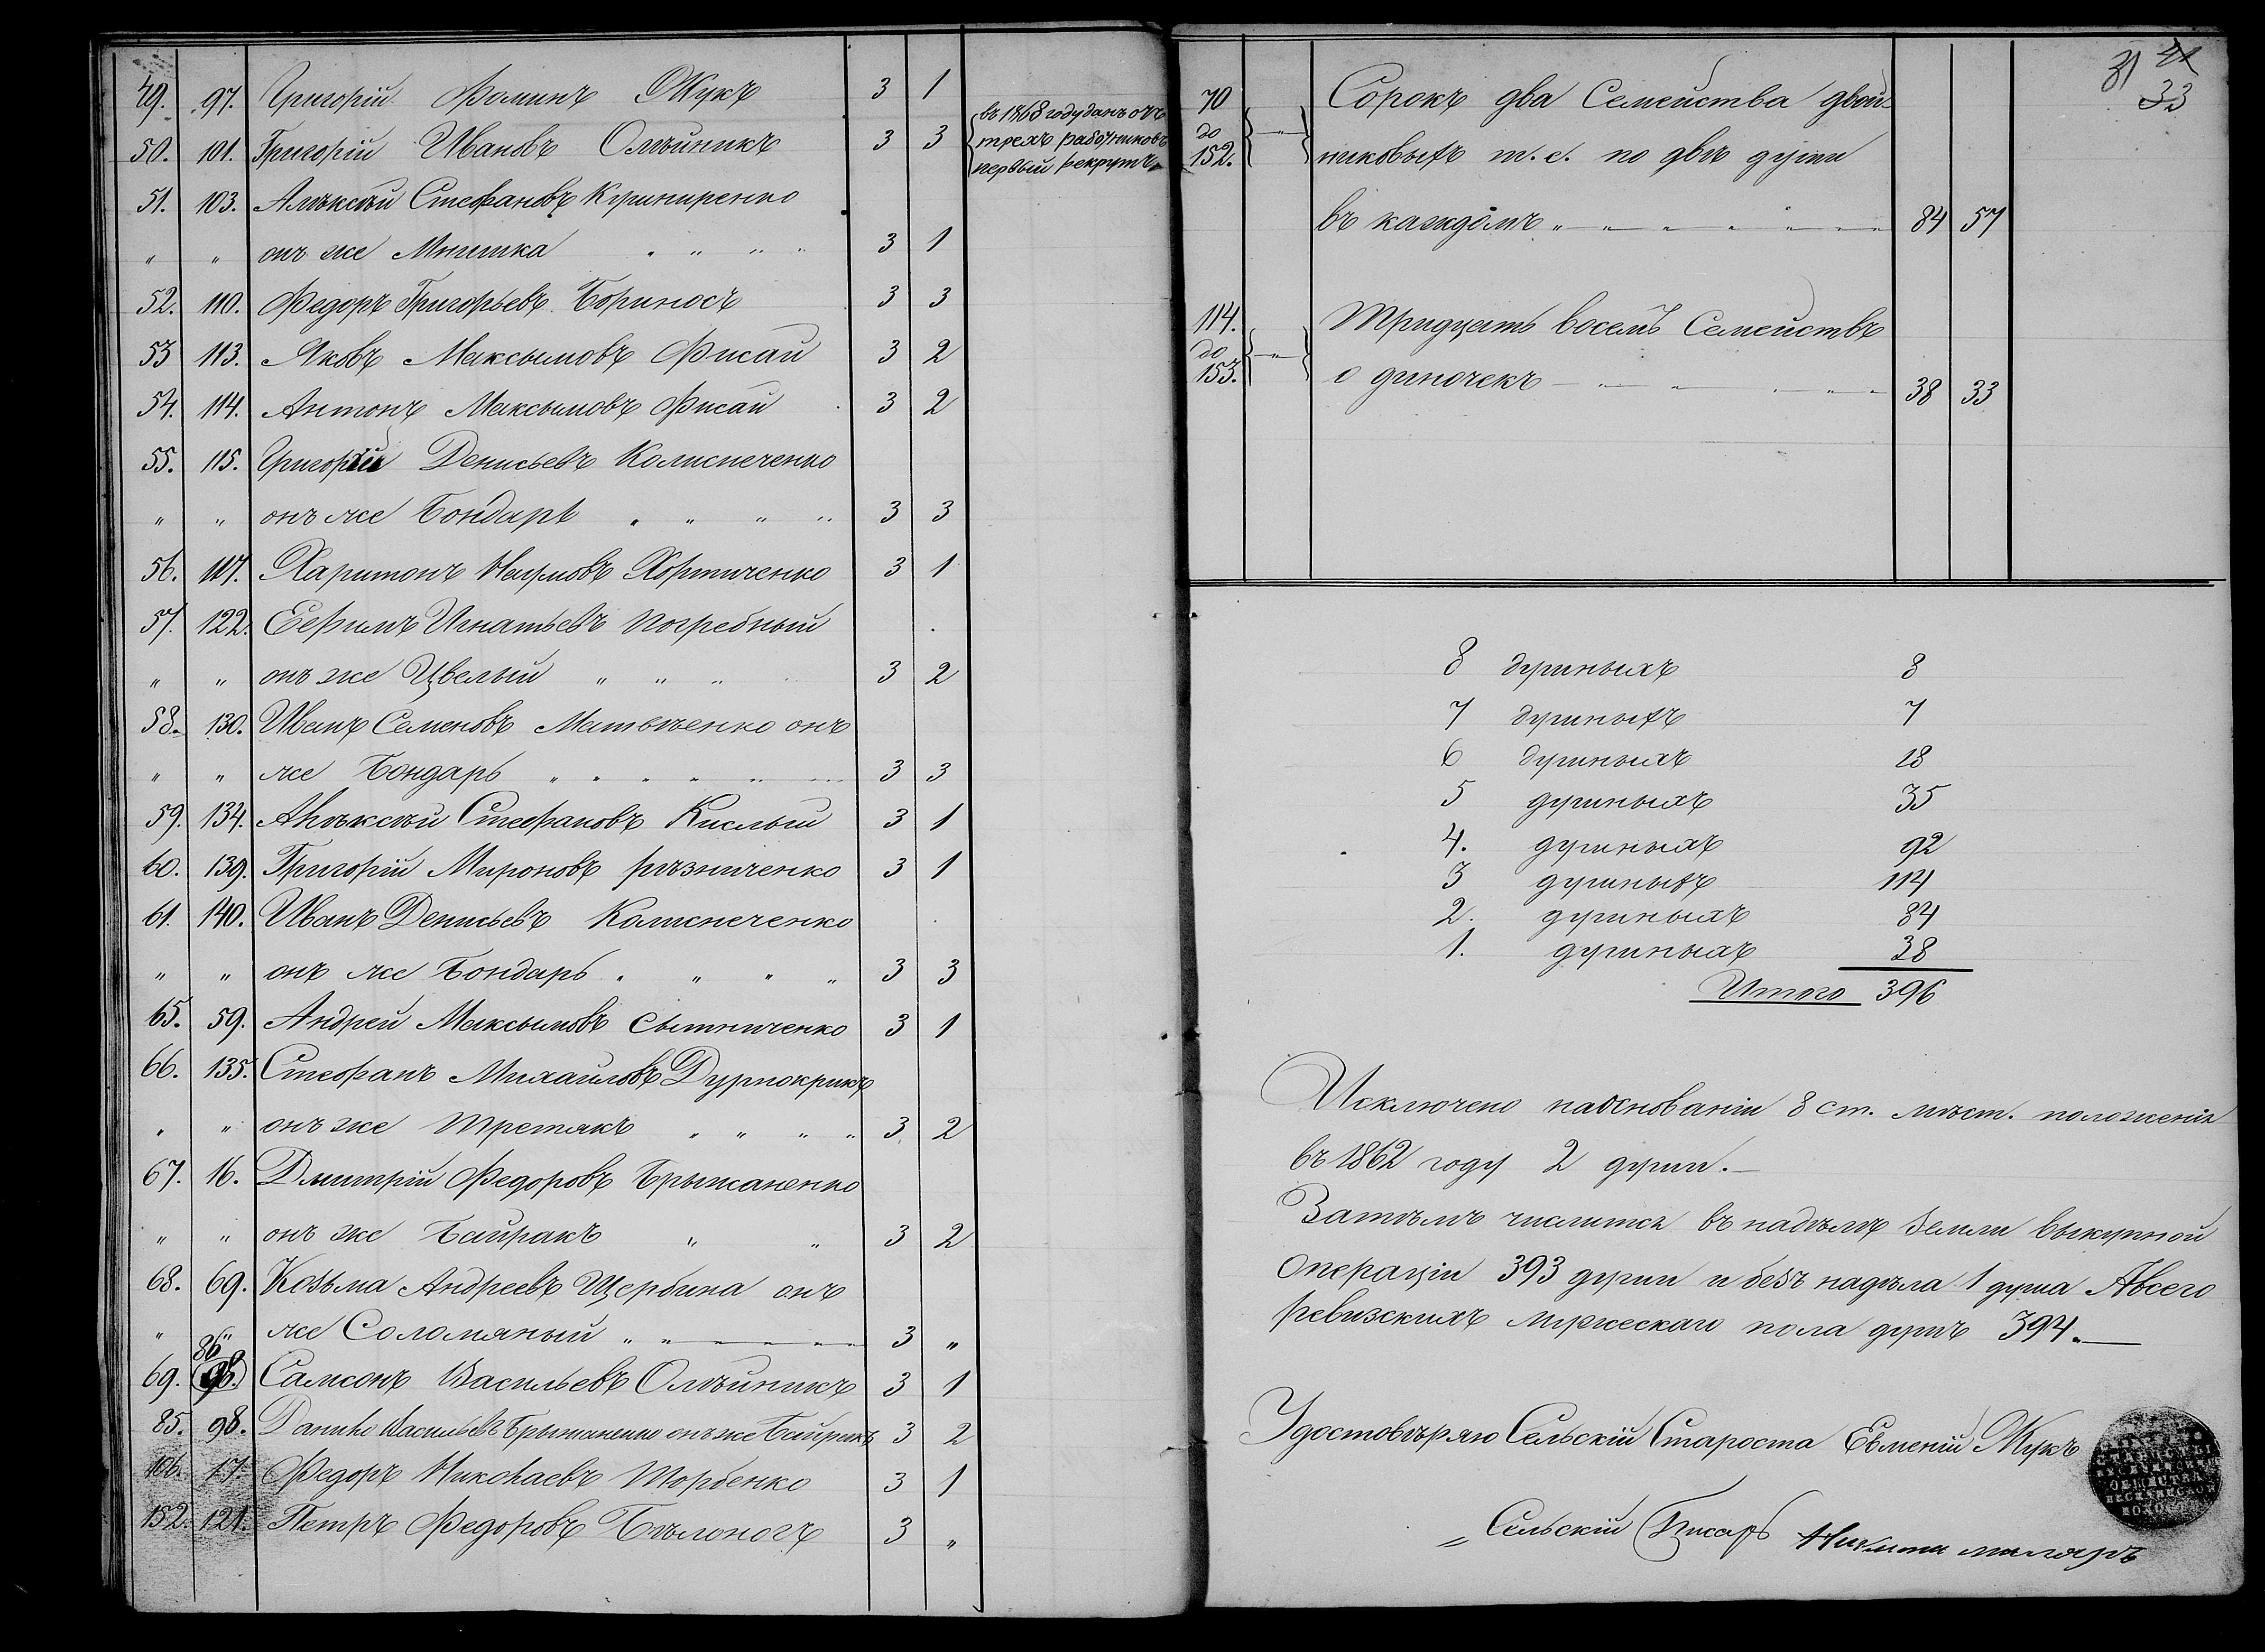 49. 97. Григорій Фоминъ Жукъ 3 1
50. 101. Григорій Ивановъ Олѣйникъ 3 3
въ 1868 году данъ отъ
трехъ работниковъ
первый рекрутъ
51. 103. Алѣксѣй Стефановъ Кушниренко
" " онъ же Мишка " " " " 3 1
52. 110. Федоръ Григорьевъ Бориносъ 3 3
53 113. Яковъ Максымовъ Фисай 3 2
54. 114. Антонъ Максымовъ Фисай 3 2
55. 115. Григорій Денисьевъ Колиснеченко
" " онъ же Бондарь " " " " 3 3
56. 117. Харитонъ Наумовъ Хортиченко 3 1
57. 122. Ефимъ Игнатьевъ Погребный
" " онъ же Цвелый " " " 3 2
58. 130. Иванъ Семеновъ Матвѣенко онъ
" " же Бондарь " " " " " " 3 3
59. 134. Алѣксѣй Стефановъ Кислый 3 1
60. 139. Григорій Мироновъ рѣзниченко 3 1
61. 140. Иванъ Денисьевъ Колиснеченко
" " онъ же Бондарь " " " " 3 3
65. 59. Андрей Максымовъ Сытниченко 3 1
66. 135. Стефанъ Михайловъ Дурнокрикъ
" " онъ же Третякъ " " " " 3 2
67. 16. Дмитрій Федоровъ Брыжаненко
" " онъ же Байракъ " " 3 2
68. 69. Козьма Андреевъ Щербина онъ
" " же Соломяный " " " " " " 3 "
86
69. 98. Самсонъ Васильевъ Олѣйникъ 3 1
85. 98. Данило Васильевъ Брыжаненко онъ же Байракъ 3 2
106. 17. Федоръ Николаевъ Торбенко 3 1
152. 121. Петръ Федоровъ Бѣлоногъ 3 "
31 41
33
70 Сорокъ два Семейства двой-
до
152. никовыхъ т. е. по двѣ души
въ каждомъ " " " " " " " 84 57
114. Тридцать восемь Семействъ
до
153. одиночекъ " " " " " 38 33
8 душныхъ 8
7 душныхъ 7
6 душныхъ 18
5 душныхъ 35
4. душныхъ 92
3 душныхъ 114
2. душныхъ 84
1. душныхъ 38
Итого 396
Исключено на основаніи 8 ст. мѣст. положенія
въ 1862 году 2 души.
Затѣмъ числится въ надѣлѣ земли выкупной
операціи 393 души и безъ надѣла 1 душа Авсего
ревизскихъ мужескаго пола душъ 394.
Удостовѣряю Сельскій Староста Евменій Жукъ
Сельскій Писарь Никита